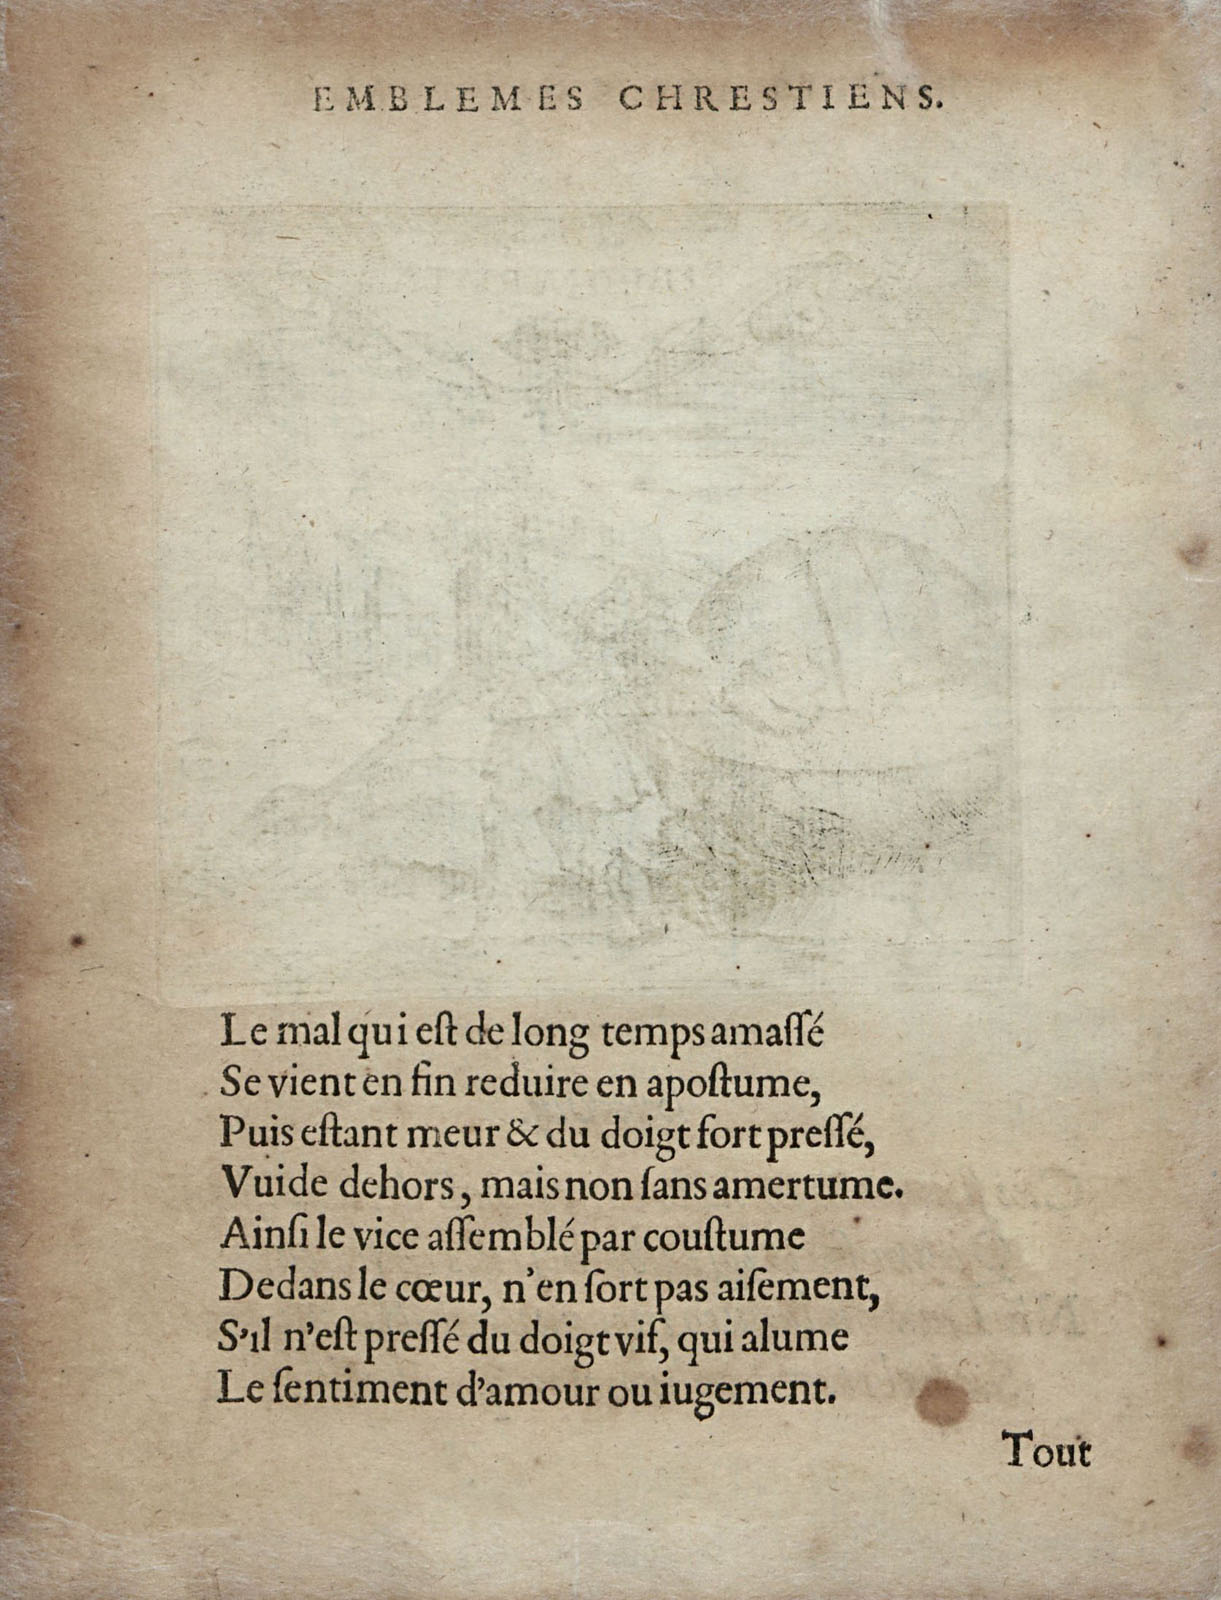 EMBLEMES CHRESTIENS.
Le mal qui eſt de long temps amaſſé
Se vient en fin reduire en apoſtume,
Puis eſtant meur & du doigt fort preſſé,
Vuide dehors, mais non ſans amertume.
Ainſi le vice aſſemblé par couſtume
Dedans le cœur, n'en ſort pas aiſement,
S'il n'eſt preſſé du doigt vif, qui alume
Le ſentiment d'amour ou iugement.
Tout